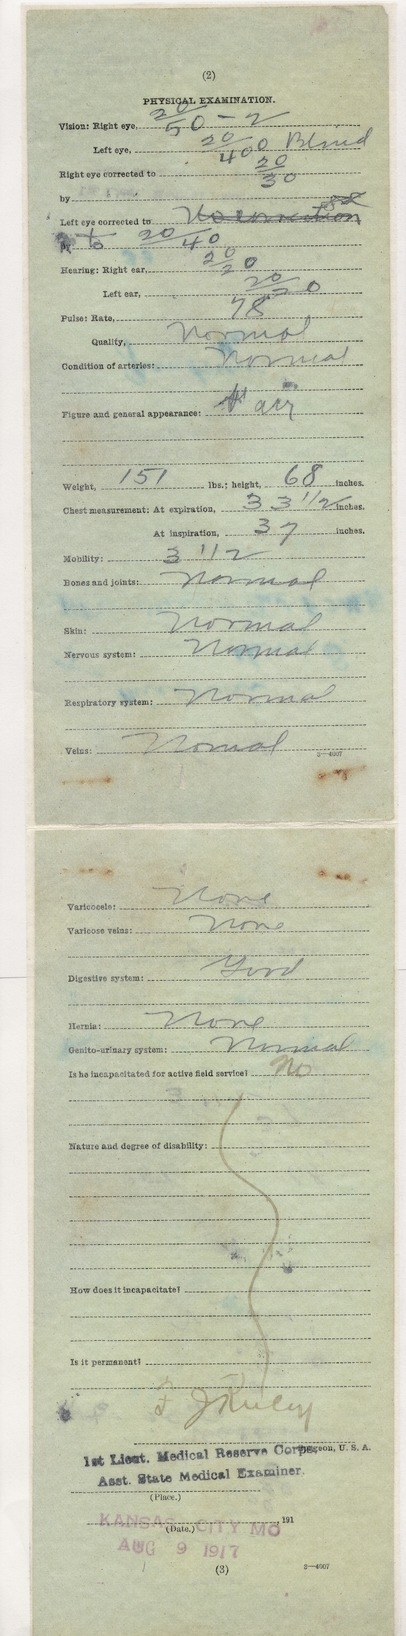 (2)
PHYSICAL EXAMINATION.
Vision: Right eye, 20/50 - 2
Left eye, 20/400 Blind
Right eye corrected to 20/30
by
Left eye corrected to No correction
to 20/40
Hearing: Right ear, 20/20
Left ear, 20/20
Pulse: Rate, 78
Quality, Normal
Condition of arteries: Normal
Figure and general appearance: Fair
Weight, 151 lbs.; height, 68 inches.
Chest measurement: At expiration, 33 1/2 inches.
At inspiration, 37 inches.
Mobility: 3 1/2
Bones and joints: Normal
Skin: Normal
Nervous system: Normal
Respiratory system: Normal
Veins: Nomal
2—4007
Varicocele: None
Varicose veins: None
Digestive system: Good
Hernia: None
Genito-urinary system: Normal
Is he incapacitated for active field service? No
Nature and degree of disability:
How does it incapacitate?
Is it permanent?
F J
Surgeon, U. S. A.
1st Lieut. Medical Reserve Corps,
Asst. State Medical Examiner.
(Place.)
KANSAS CITY MO
191
(Date.)
AUG 9 1917
(3)
2—4007